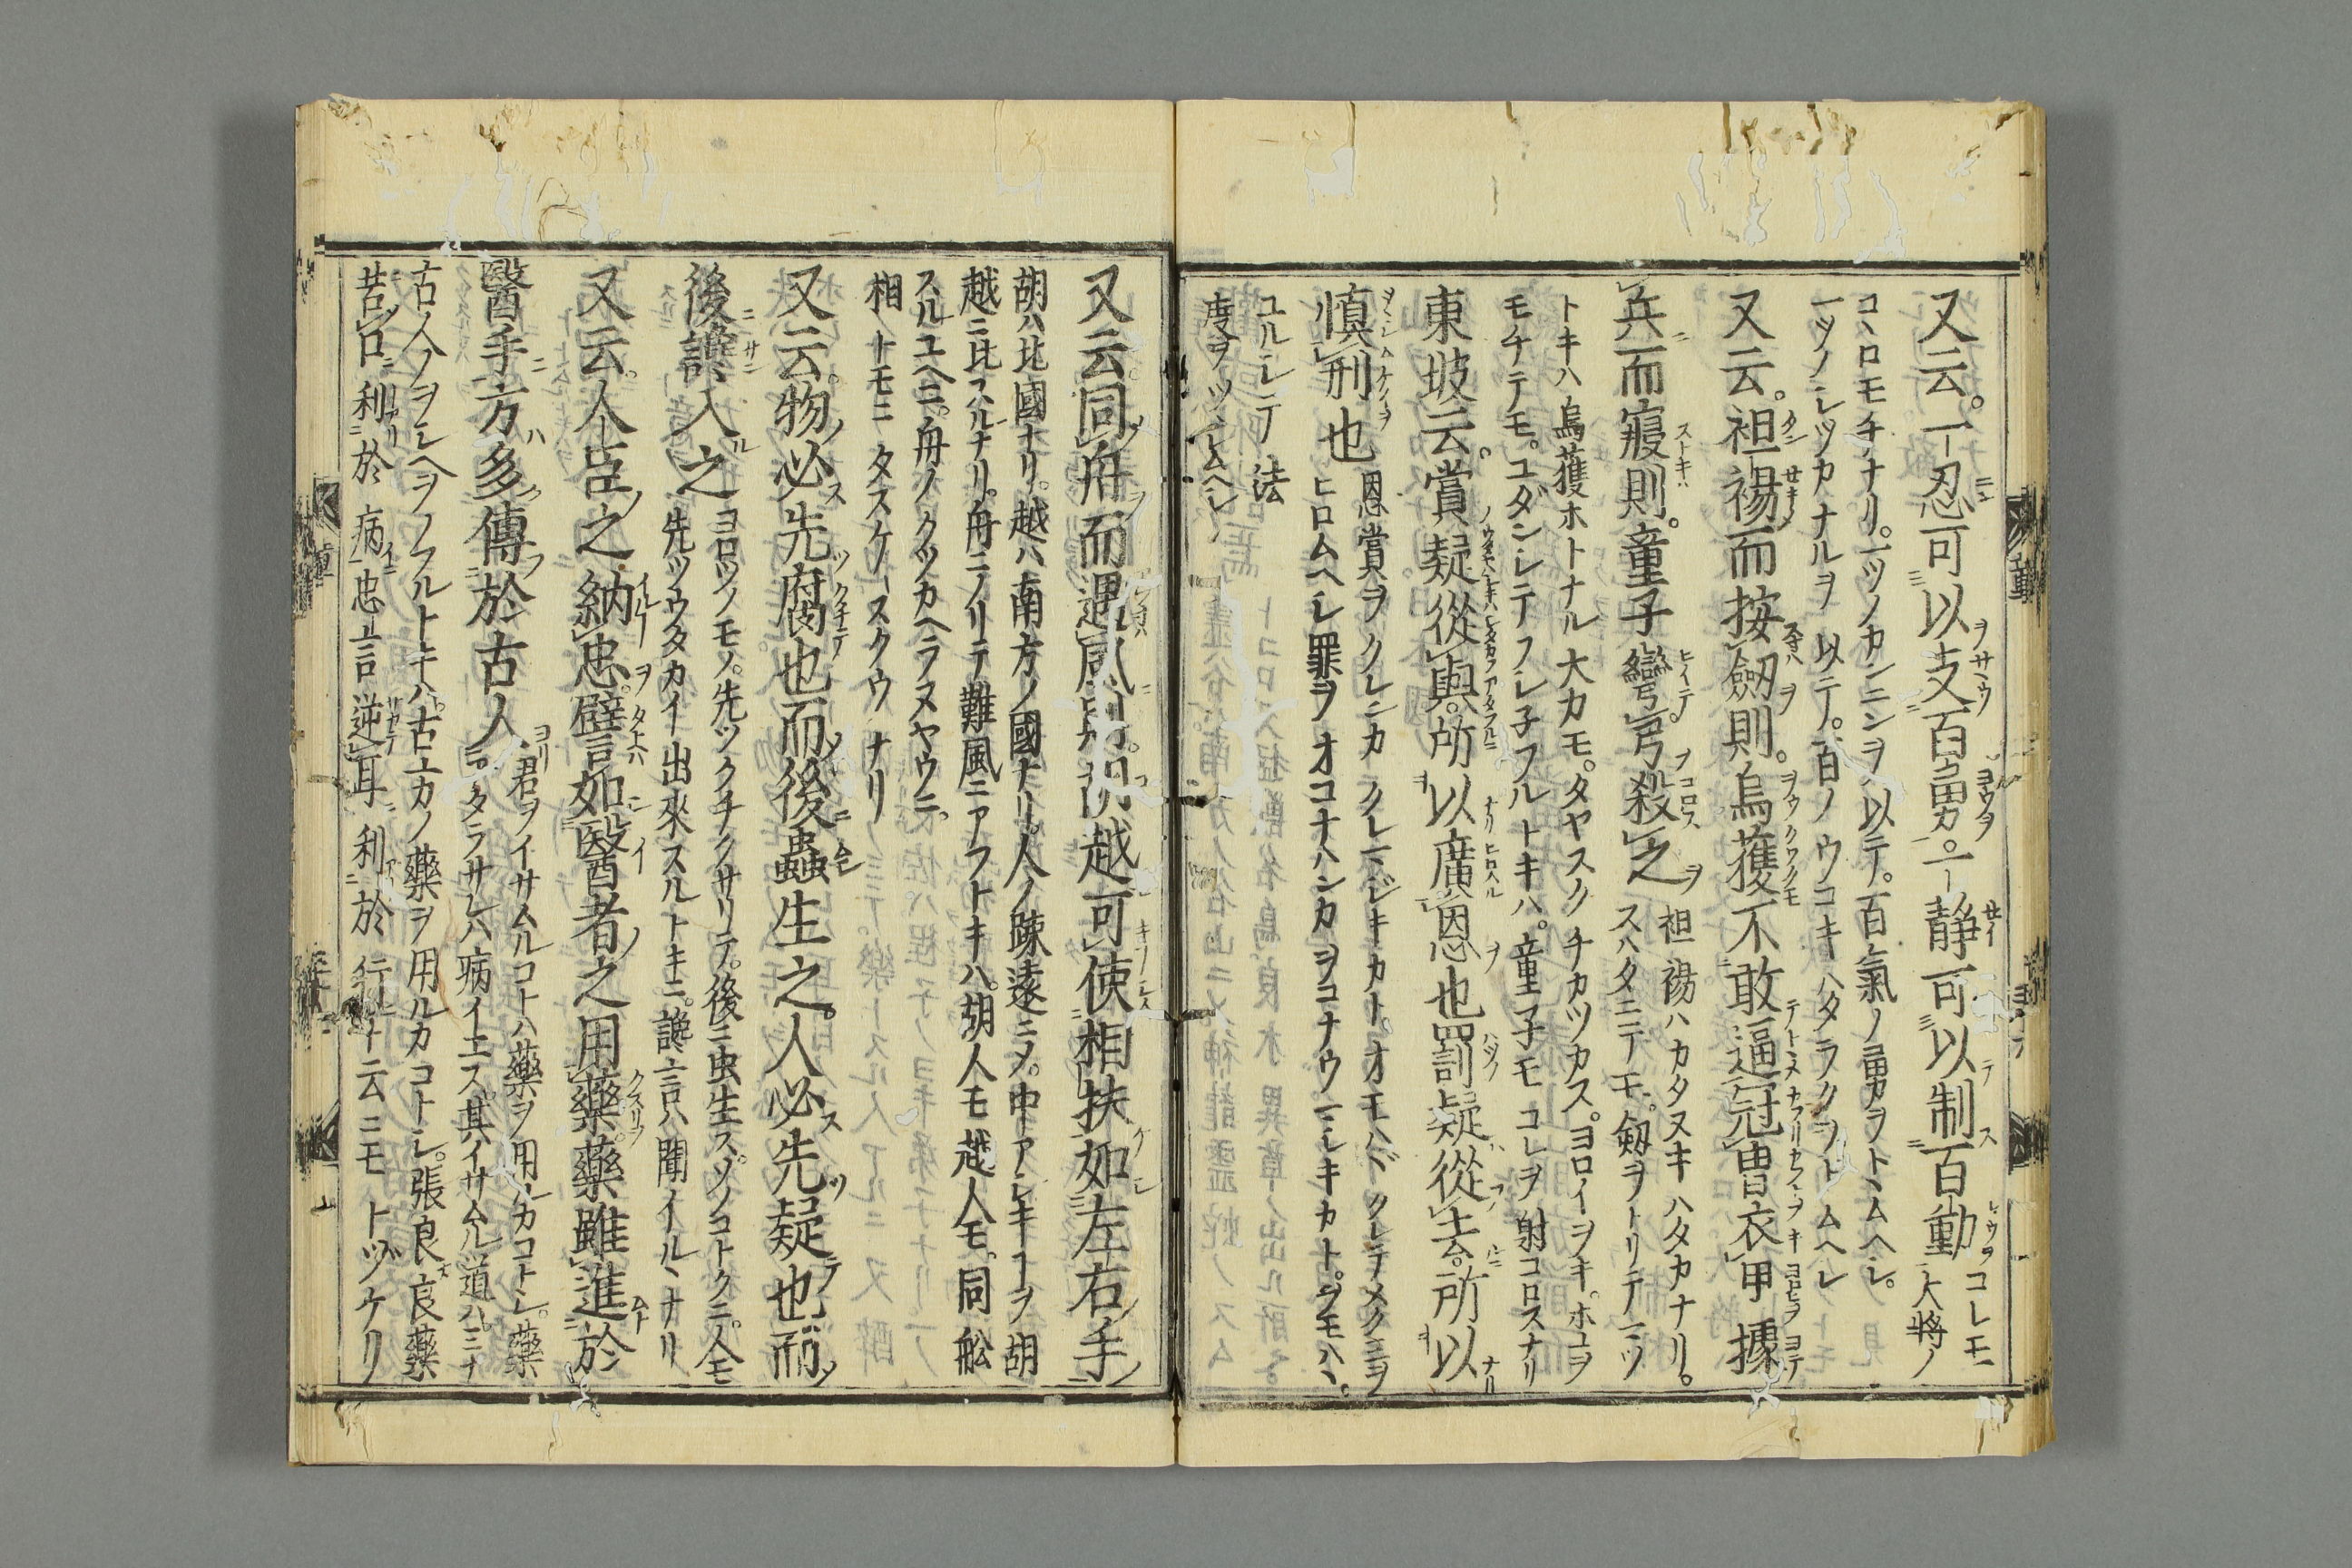 又云。一忍可以支百勇。一静可以制百動 コレモ大将ノ
コヽロモチナリ。一ツノカンニンヲ以テ。百氣ノ勇ヲトヽムヘシ。
一ツノシツカナルヲ以テ。百ノウコキハタラクヲトヽムヘシ
又云。袒裼而按劔則。烏獲不敢逼冠冑衣甲據
兵而寢則。童子彎弓殺之 袒裼ハカタヌキハタカナリ。
スハタニテモ。劔ヲトリテ一ツ
トキハ烏獲ホトナル大カモ。タヤスクチカツカス。ヨロイヲキ。ホコヲ
モチテモ。ユダンシテフシ子フルトキハ。童子モコレヲ射コロスナリ
東坡云。賞疑從與。所以廣恩也罰疑從去。所以
慎刑也 恩賞ヲクレンカクレマジキカト。オモハヾクレテメクミヲ
ヒロムヘシ罪ヲオコナハンカヲコナウマシキカト。ヲモハヽ。
ユルシテ法
度ヲツヽシムヘシ
又云同舟而遇風則。胡越可使相扶如左右手
胡ハ北國ナリ。越ハ南方ノ國ナリ。人ノ疎遠ニメ。中アシキコヲ胡
越ニ比スルナリ。舟ニノリテ難風ニアフトキハ。胡人モ越人モ。同舩
スルユヘニ。舟ノクツカヘラヌヤウニ。
相トモニタスケ スクウナリ
又云。物必先腐也而後蟲生之。人必先疑也而
後讒入之 ヨロツノモノ。先ツクチクサリテ。後ニ虫生ス。ソノコトクニ。人モ
先ツウタカイ出來スルトキニ。讒言ハ聞イルヽナリ
又云。人臣之納忠。譬如醫者之用藥。藥雖進於
醫手方多傳於古人 君ヲイサムルコトハ藥ヲ用ルカコトシ。藥
ニアタラサレハ病イエス。其イサムル道ハ。ミナ
古人ノヲシヘヲノフルトキハ。古方ノ藥ヲ用ルカコトシ。張良良藥
苦口利於病忠言逆耳利於行ト云ニモトヅケリ